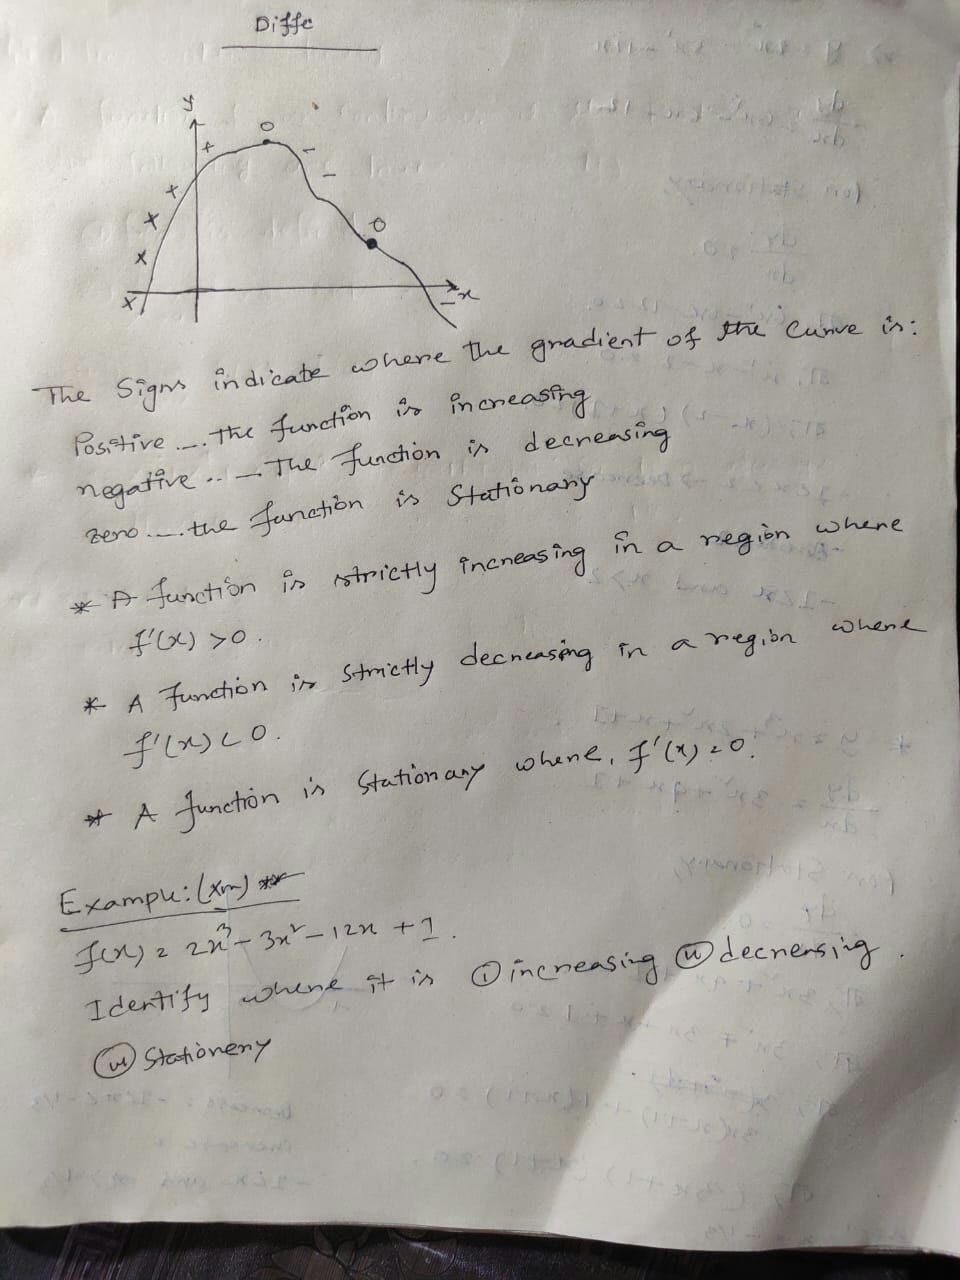 Diffe
y
+ 0 -
+ -
+ 0
x
x -x
The Signs indicate where the gradient of the curve is:
Positive ... The function is increasing
negative ... The function is decreasing
zero ... the function is stationary
* A function is strictly increasing in a region where
f'(x) >0.
* A function is strictly decreasing in a region where
f'(x) < 0.
* A function is stationary where, f'(x) = 0.
Example: (xm) **
f(x) = 2x³ - 3x² - 12x + 1.
Identify where it is (i) increasing (ii) decreasing.
(iii) Stationery